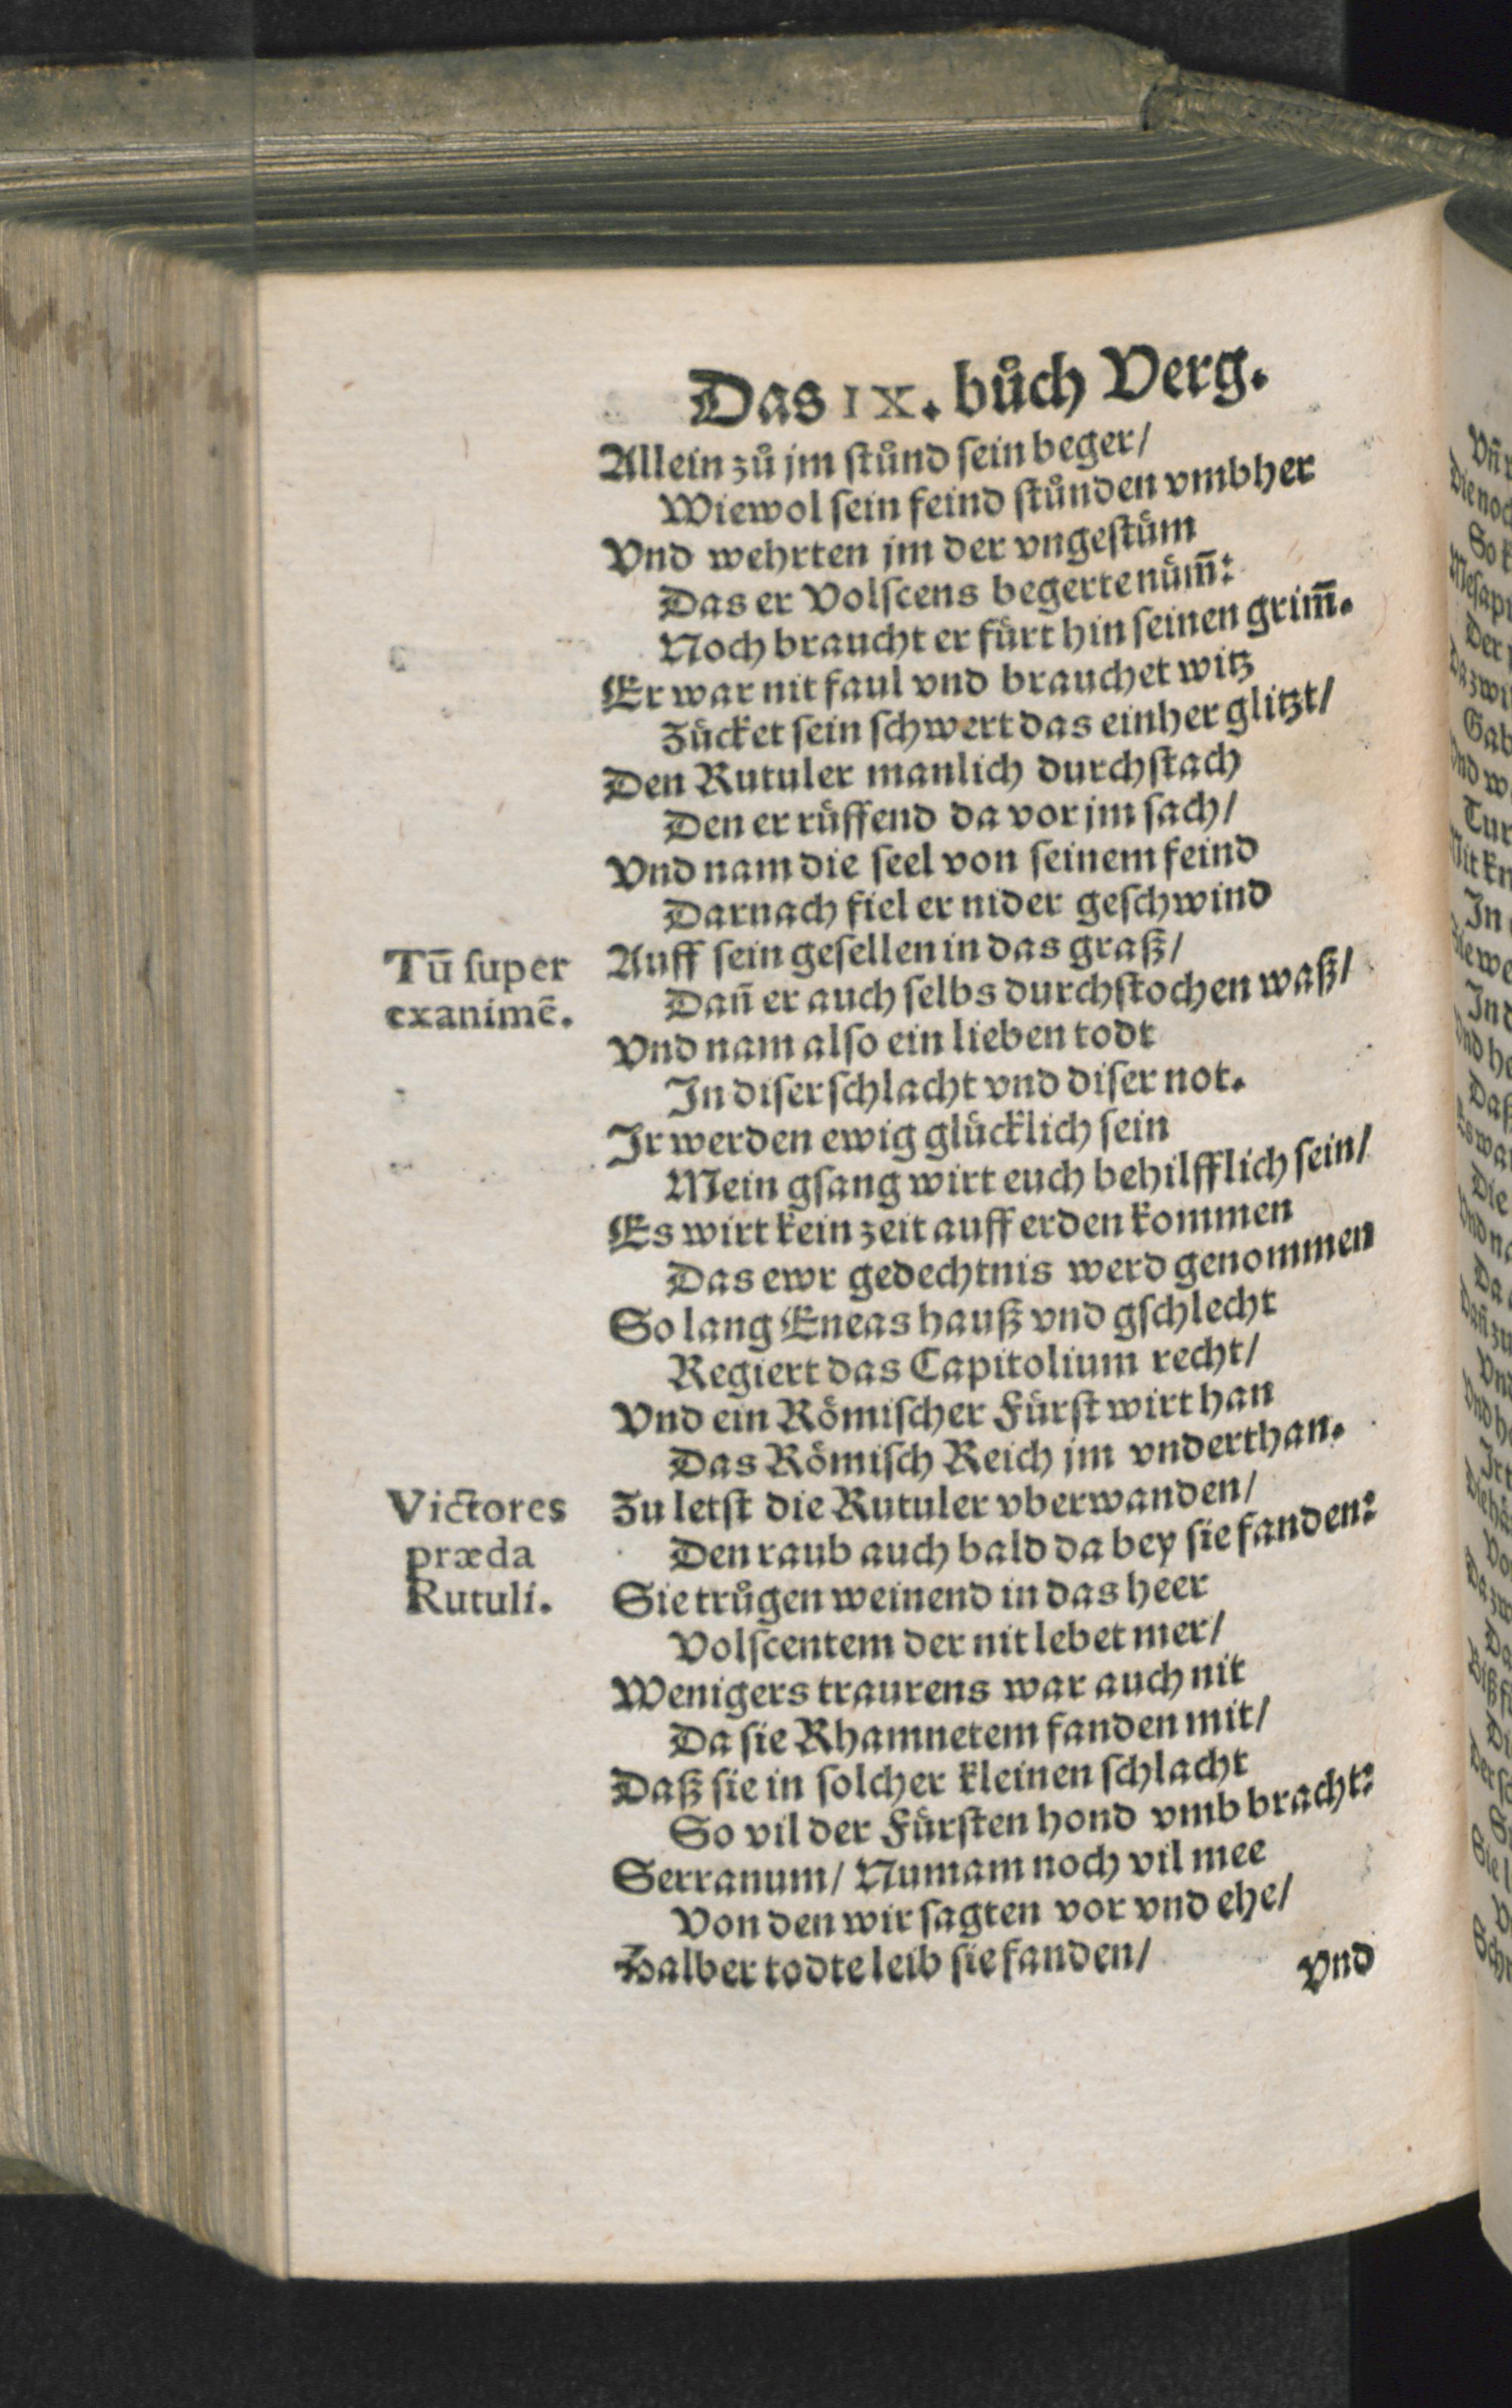 Das IX. bůch Verg.
Allein zů jm ſtůnd ſein beger/
Wiewol ſein feind ſtůnden vmbher
Vnd wehrten jm der vngeſtüm
Das er Volſcens begerte nüm̃:
Noch braucht er fürt hin ſeinen grim̃.
Er war nit faul vnd brauchet witz
Zücket ſein ſchwert das einher glitzt/
Den Rutuler manlich durchſtach
Den er rüffend da vor jm ſach/
Vnd nam die ſeel von ſeinem feind
Darnach fiel er nider geſchwind
Tū ſuper
exanimē.
Auff ſein geſellen in das graß/
Dañ er auch ſelbs durchſtochen waß/
Vnd nam alſo ein lieben todt
In diſer ſchlacht vnd diſer not.
Ir werden ewig glücklich ſein
Mein gſang wirt euch behilfflich ſein/
Es wirt kein zeit auff erden kommen
Das ewr gedechtnis werd genommen
So lang Eneas hauß vnd gſchlecht
Regiert das Capitolium recht/
Vnd ein Römiſcher Fürſt wirt han
Das Römiſch Reich jm vnderthan.
Victores
præda
Rutuli.
Zu letſt die Rutuler vberwanden/
Den raub auch bald da bey ſie fanden:
Sie trůgen weinend in das heer
Volſcentem der nit lebet mer/
Wenigers traurens war auch nit
Da ſie Rhamnetem fanden mit/
Daß ſie in ſolcher kleinen ſchlacht
So vil der Fürſten hond vmb bracht:
Serranum/ Numam noch vil mee
Von den wir ſagten vor vnd ehe/
Halber todte leib ſie fanden/
Vnd